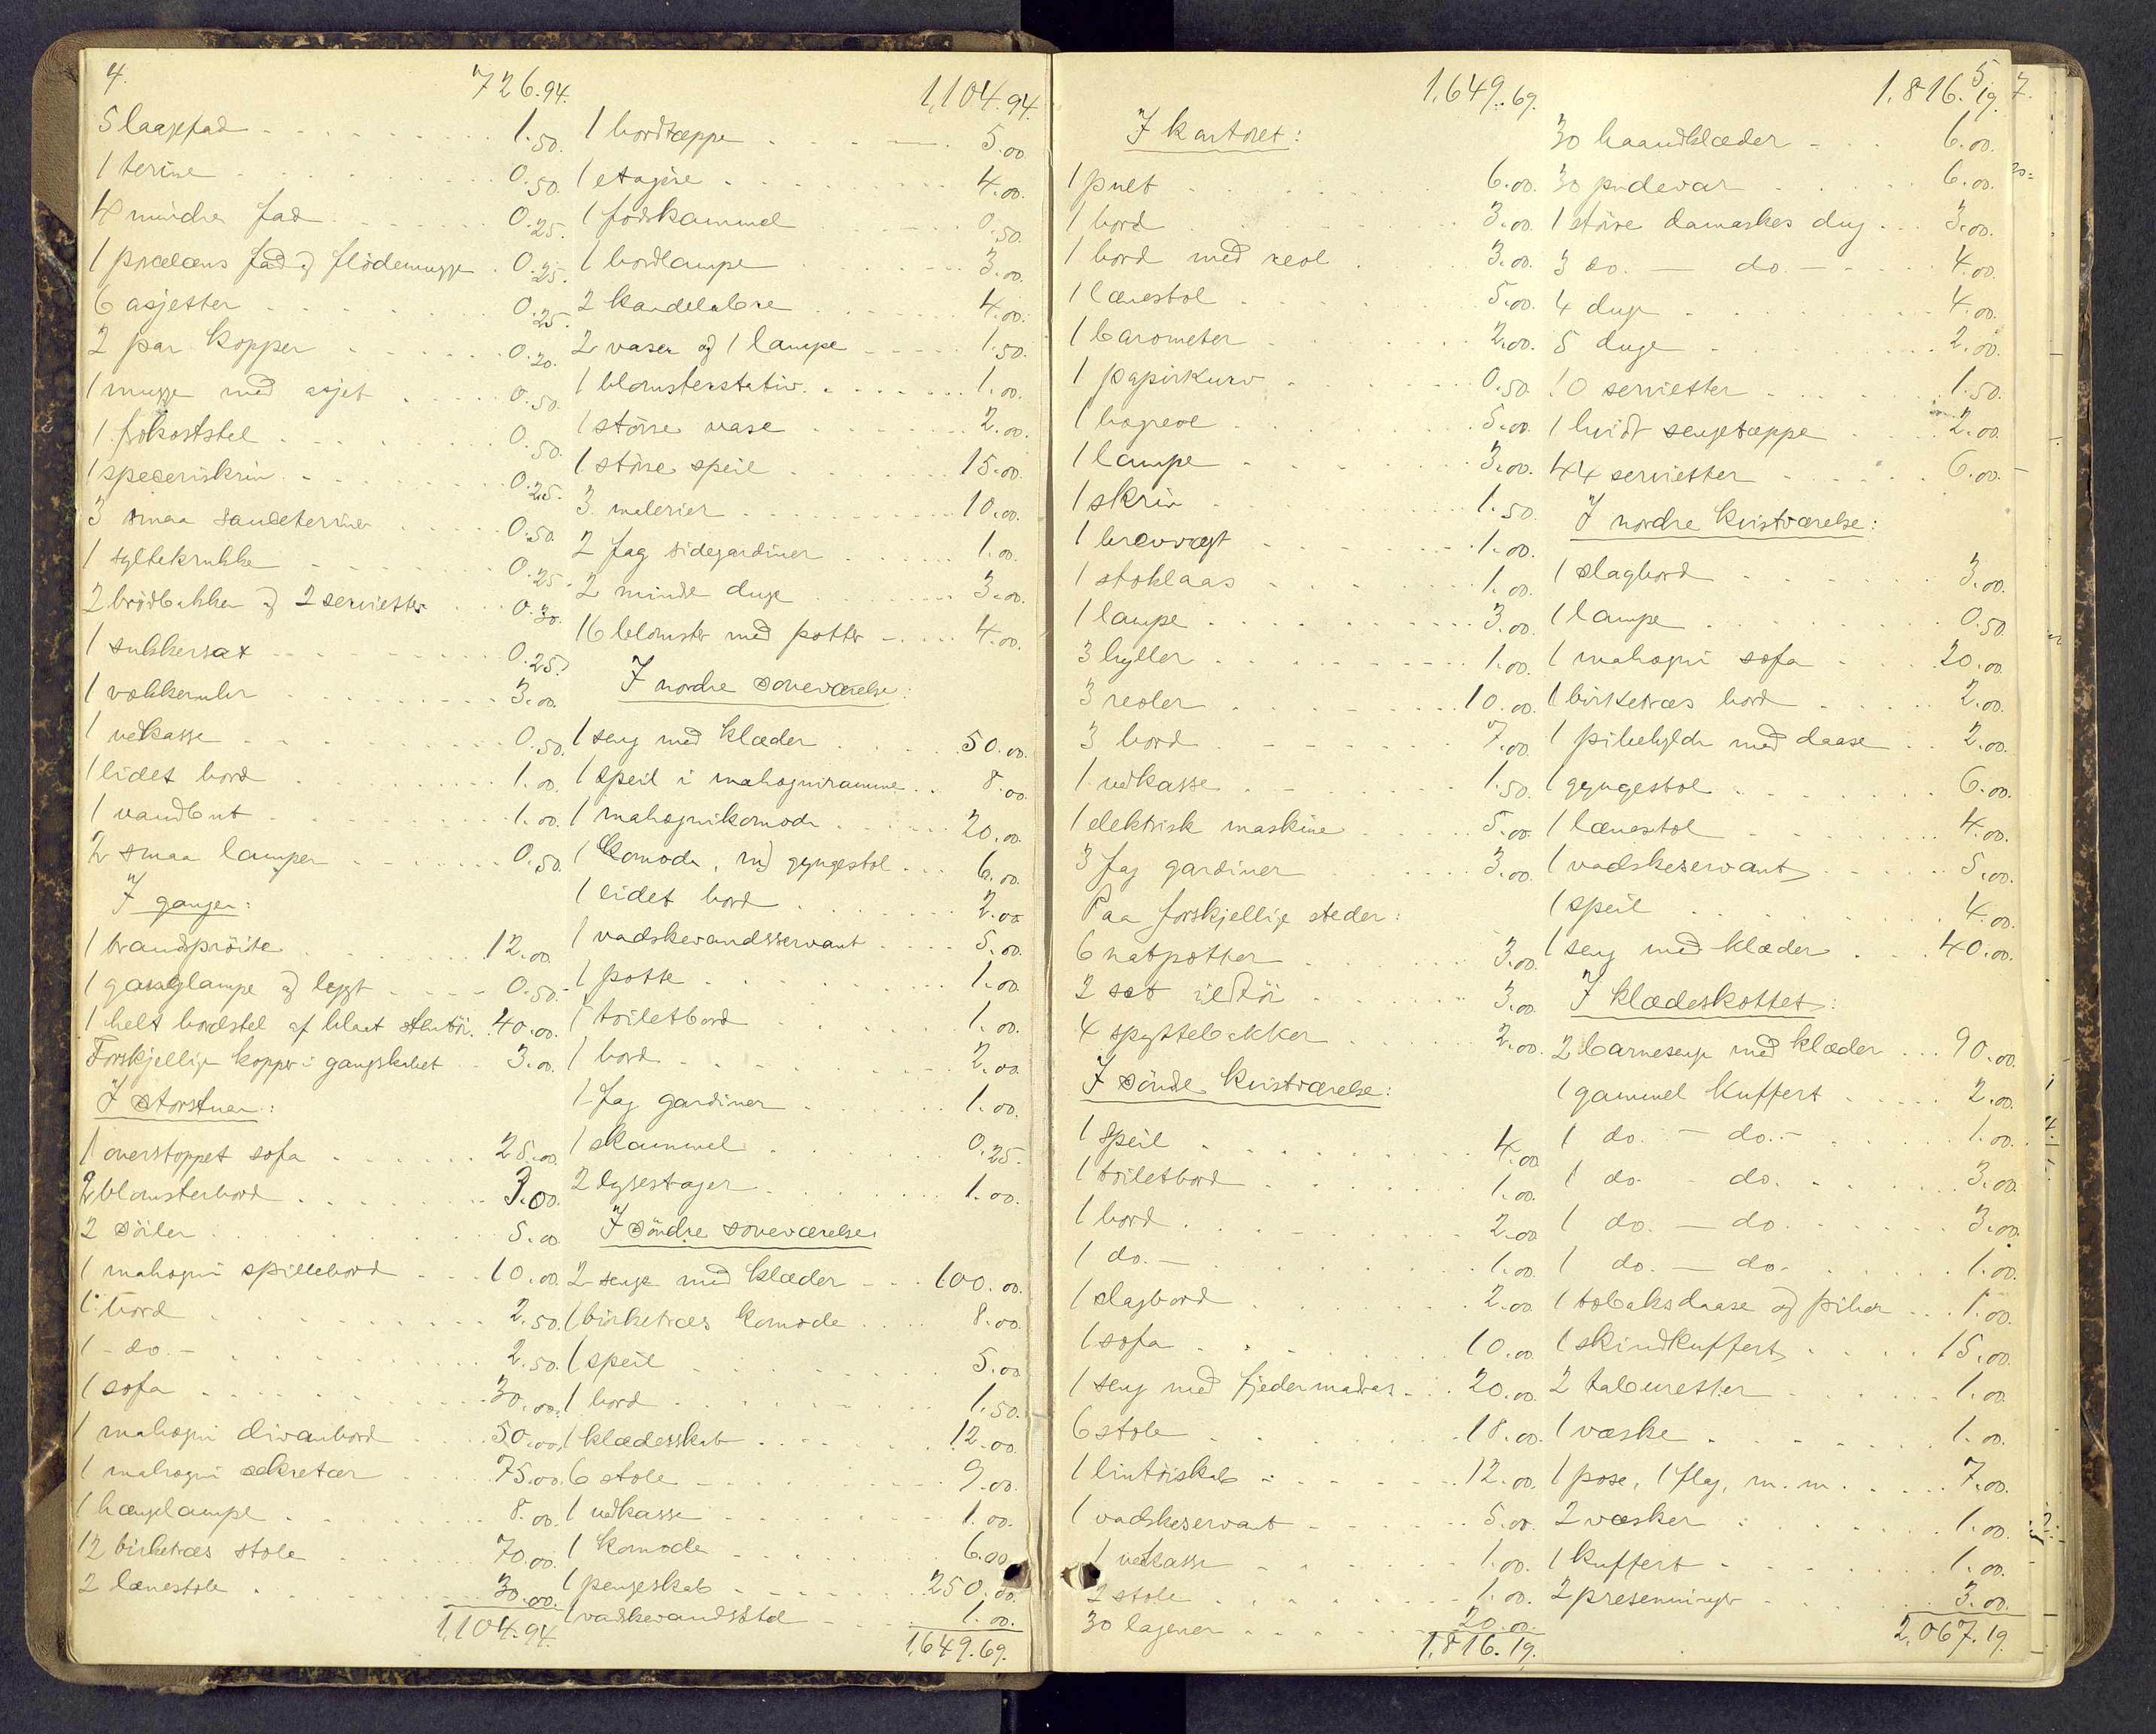 4.
726.94.
5 laagefad 1.50.
1 terine 0.50.
4 mindre fad 0.25.
1 porcelæns fad og flödemugge 0.25.
6 asjetter 0.25.
2 par kopper 0.20.
1 mugge med asjet 0.50.
1 frökoststel 0.50.
1 speseriskrin 0.25.
3 smaa sauceterriner 0.50.
1 syltekrukke 0.25.
2 brödbakker og 2 servietter 0.30.
1 sukkersax 0.25.
1 vækkeruhr 3.00.
1 vedkasse 0.50.
1 lidet bord 1.00.
1 vandbut 1.00.
2 smaa lamper 0.50.
I gangen:
1 brandspröite 12.00.
1 ganglampe og lygt 0.50.
1 helt bordstel af blaat stentöi 40.00.
Forskjellige kopper i gangskabet 3.00.
I storstuen:
1 overstoppet sofa 25.00.
2 blomsterbord 3.00.
2 söiler 5.00.
1 mahogni spillebord 10.00.
1 bord 2.50.
1 - do. - 2.50.
1 sofa 30.00.
1 mahogni divanbord 50.00.
1 mahogni sekretær 75.00.
1 hængelampe 8.00.
12 birketræs stole 70.00.
2 lænestole 30.00.
1,104.94.
1,104.94.
1 bordtæppe 5.00.
1 etagère 4.00.
1 fodskammel 0.50.
1 bordlampe 3.00.
2 kandelabre 4.00.
2 vaser og 1 lampe 1.50.
1 blomsterstativ 1.00.
1 större vase 2.00.
1 större speil 15.00.
3 malerier 10.00.
2 fag sidegardiner 1.00.
2 mindre duge 3.00.
16 blomster med potter 4.00.
I nordre soveværelse:
1 seng med klæder 50.00.
1 speil i mahogniramme 8.00.
1 mahognikomode 20.00.
1 gyngestol 6.00.
1 lidet bord 2.00
1 vadskevandsservant 5.00.
1 potte 1.00.
1 toiletbord 1.00.
1 bord 2.00.
1 fag gardiner 1.00.
1 skammel 0.25.
2 lysestager 1.00.
I söndre soveværelse.
2 senge med klæder 100.00.
1 birketræs komode 8.00.
1 speil 5.00
1 bord 1.50.
1 klædesskab 12.00.
6 stole 9.00.
1 vedkasse 1.00.
1 komode 6.00.
1 pengeskab 250.00.
1 vadskevandsstel 1.00.
1,649.69.
1,649.69.
I kontoret:
1 pult 6.00.
1 bord 3.00.
1 bord med reol 3.00.
1 lænestol 5.00.
1 barometer 2.00.
1 papirkurv 0.50.
1 bogreol 5.00.
1 lampe 3.00.
1 skrin 1.50.
1 brevvægt 1.00.
1 stoklaas 1.00.
1 lampe 3.00.
3 hyller 1.00.
3 reoler 10.00.
3 bord 7.00.
1 vedkasse 1.50.
1 elektrisk maskine 5.00.
3 fag gardiner 3.00.
Paa forskjellige steder:
6 natpotter 3.00.
2 set ildtöi 3.00.
4 spyttebakker 2.00.
I söndre kvistværelse:
1 speil 4.00
1 toiletbord 1.00.
1 bord 2.00
1 do. - 1.00.
1 slagbord 2.00
1 sofa 10.00.
1 seng med fjedermadras 20.00.
6 stole 18.00.
1 lintöiskab 12.00.
1 vadskeservant 5.00.
1 vedkasse 1.00.
2 stole 1.00.
30 lagener 20.00.
1,816.19.
5.
1,816.19.
30 haandklæder 6.00.
30 pudevar 6.00.
1 större damaskes dug 3.00.
3 do. - do. - 4.00.
4 duge 4.00.
5 duge 2.00.
10 servietter 1.50.
1 hvidt sengetæppe 2.00.
44 servietter 6.00.
I nordre kvistværelse:
1 slagbord 3.00.
1 lampe 0.50.
1 mahogni sofa 20.00.
1 birketræs bord 2.00.
1 pibehylde med daase 2.00.
1 gyngestol 6.00.
1 lænestol 4.00.
1 vadskeservant 5.00.
1 speil 4.00.
1 seng med klæder 40.00.
I klædeskottet:
2 barnesenge med klæder 90.00
1 gammel kuffert 2.00.
1 do. - do. - 1.00.
1 do. - do. 3.00.
1 do. - do. 3.00.
1 do. - do. 1.00.
1 tobaksdaase og piber 1.00.
1 skindkuffert 15.00.
2 taburetter 1.00.
1 væske 1.00.
1 pose, 1 flag, m.m. 7.00.
2 væsker 1.00.
1 kuffert 1.00.
2 presenninger 3.00.
2,067.19.
7.